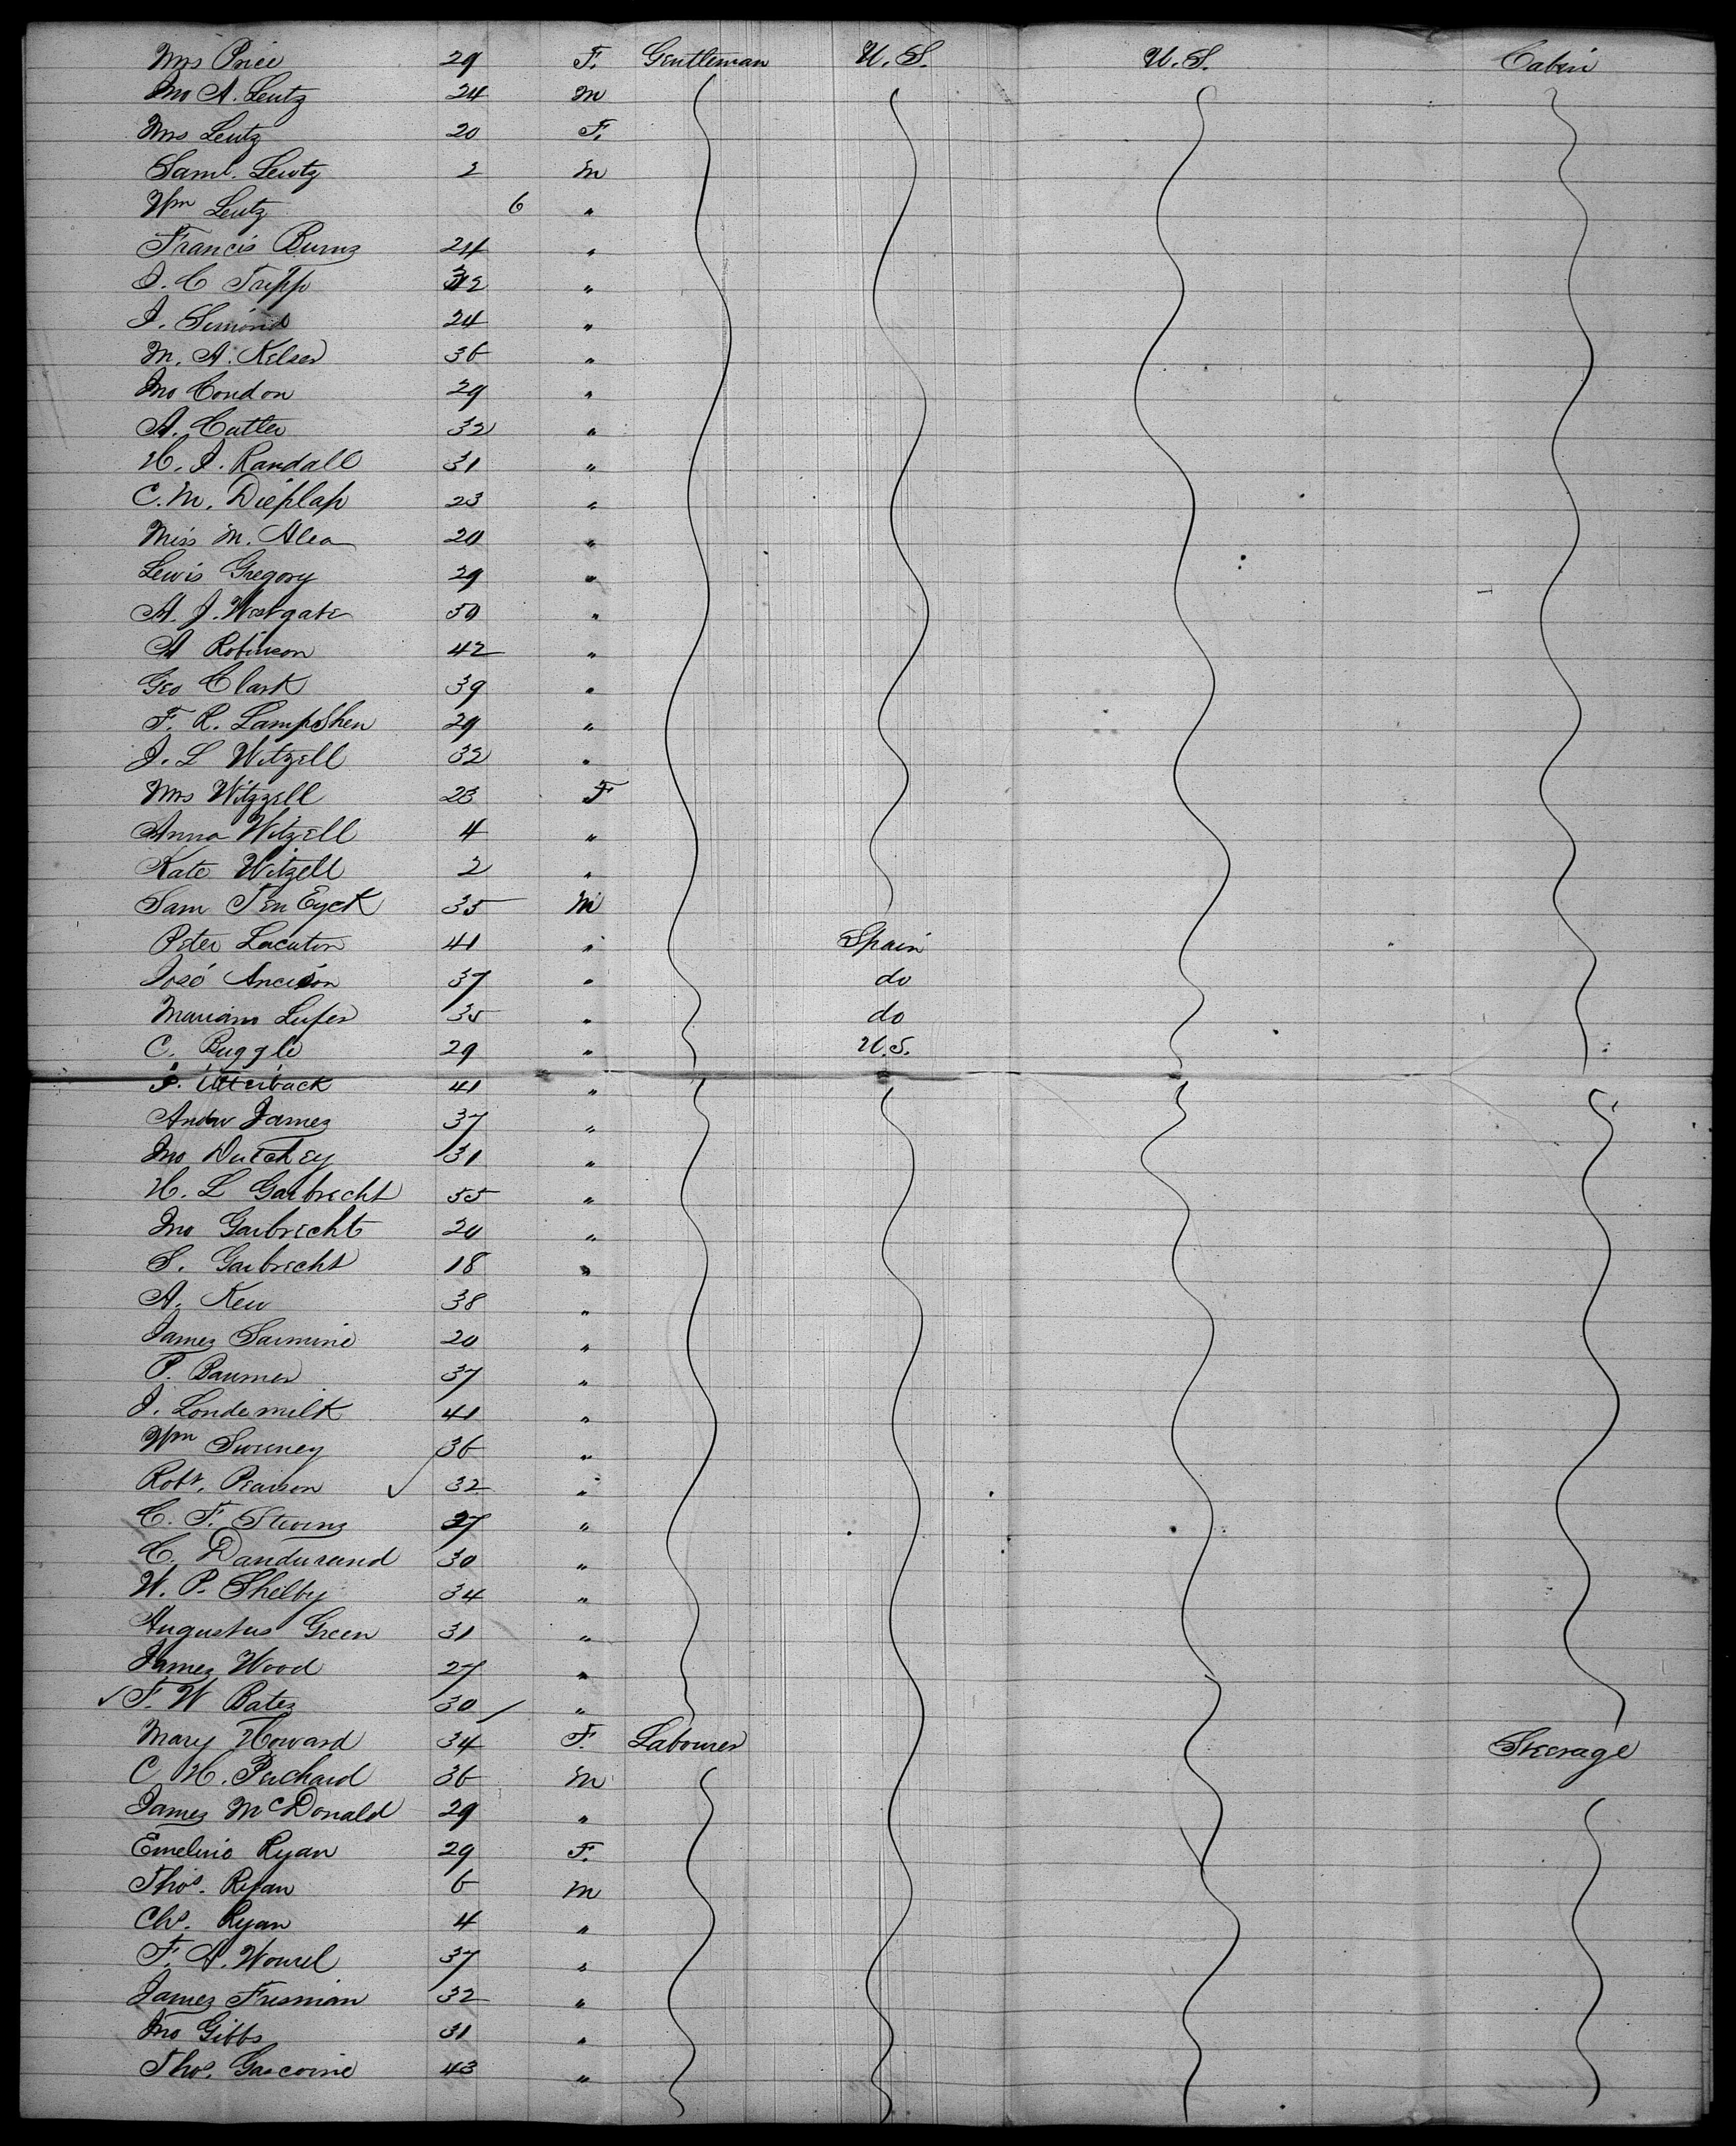 Mrs Price 29 F. Gentleman U. S. U. S. Cabin
Jno A. Leutz 24 M
Mrs Leutz 20 F.
Saml. Leutz 2 M
Wm Leutz 6 "
Francis Burns 24 "
J. C Tripp 32 "
J. Simond 24 "
M. A. Kelser 36 "
Jno Condon 29 "
A. Cutler 32 "
H. J. Randall 31 "
C. M. Dieplap 23 "
Miss M. Alea 20 "
Lewis Gregory 29 "
A. J. Westgate 50 "
A Robinson 42 "
Geo Clark 39 "
F. R. LampShen 29 "
J. L Witzell 32 "
Mrs Witzzell 23 F
Anna Witzell 4 "
Kate Witzell 2 "
Sam Ten Eyck 35 M
Peter Lacuton 41 " Spain
José Ancision 37 " do
Mariano Lufer 35 " do
C. Buggle 29 " U.S.
J. Utterback 41 "
Andw James 37 "
Jno Dutchey 31 "
H. L Garbrecht 55 "
Jno Garbrecht 20 "
S. Garbrecht 18 "
A. Kew 38 "
James Sarmine 20 "
P. Baumer 37 "
J. Londemilk 41 "
Wm Sweeney 36 "
Robt. Pearson 32 "
C. F. Stevens 27 "
C. Dandurand 30 "
W. P. Shelby 34 "
Augustus Green 31 "
James Wood 27 "
F. W Bates 30 "
Mary Howard 34 F. Labourer Steerage
C H. Perchard 36 M
James McDonald 29 "
Emeline Ryan 29 F.
Thos. Ryan 6 M
Chs. Ryan 4 "
F. A. Wourel 37 "
James Freeman 32 "
Jno Gibbs 31 "
Thos. Gascoine 43 "